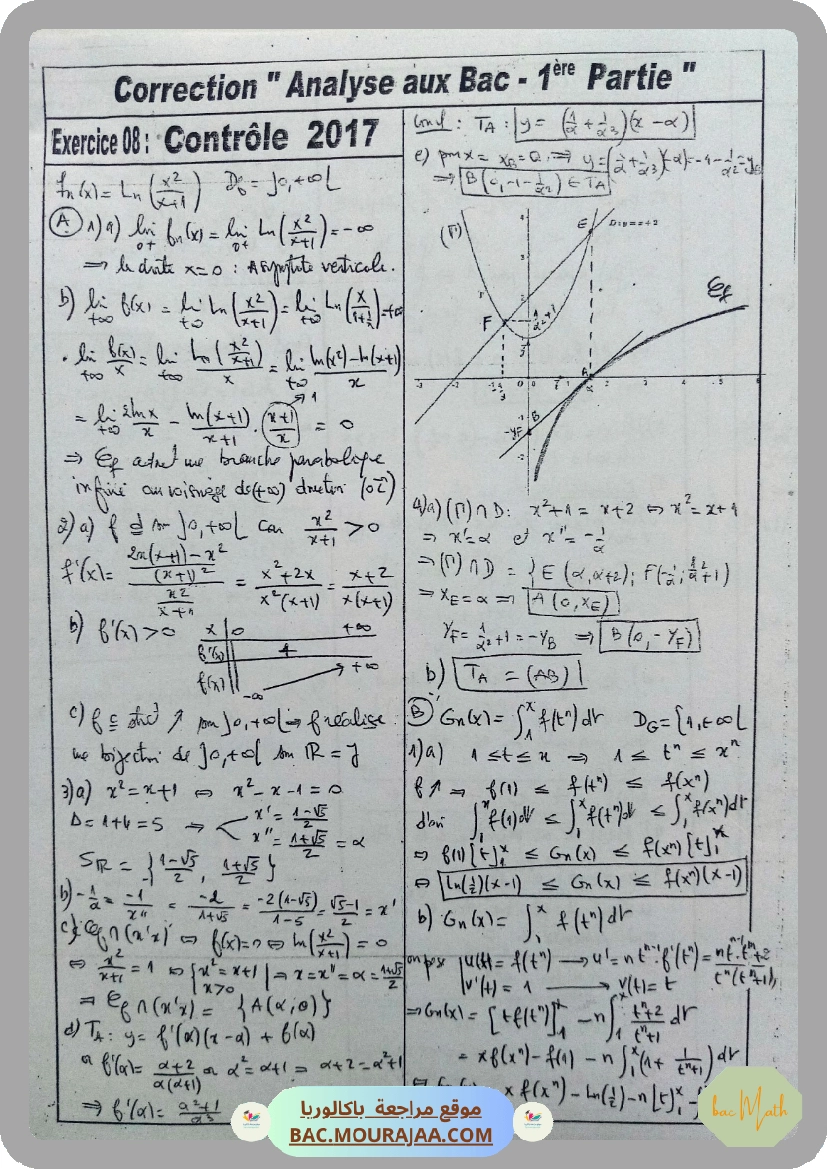 Correction " Analyse aux Bac - 1ère Partie "
Exercice 08 : Contrôle 2017
fn(x) = Ln (x²/(x+1)) Df = ]0,+∞[
(A) 1) a) lim 0+ fn(x) = lim 0+ Ln (x²/(x+1)) = -∞
⇒ la droite x=0 : Asymptote verticale.
b) lim +∞ f(x) = lim +∞ Ln (x²/(x+1)) = lim +∞ Ln (x/(1+1/x)) = +∞
• lim +∞ f(x)/x = lim +∞ Ln(x²/(x+1))/x = lim +∞ (ln(x²) - ln(x+1))/x
= lim +∞ 2lnx/x - ln(x+1)/(x+1) · (x+1)/x → 1 = 0
⇒ Cf admet une branche parabolique
infinie au voisinage de (+∞) direction (oi)
2) a) f d sur ]0,+∞[ car x²/(x+1) > 0
f'(x) = ((2x(x+1) - x²)/(x+1)²)/(x²/(x+1)) = (x²+2x)/(x²(x+1)) = (x+2)/(x(x+1))
b) f'(x) > 0
x 0 +∞
f'(x) +
f(x) -∞ +∞
c) f strict ↗ sur ]0,+∞[ ⇒ f réalise
une bijection de ]0,+∞[ sur ℝ = J
3) a) x² = x+1 ⇔ x² - x - 1 = 0
Δ = 1+4 = 5 ⇒ x' = (1-√5)/2
x'' = (1+√5)/2 = α
Sℝ = { (1-√5)/2 , (1+√5)/2 }
b) -1/α = -1/x'' = -2/(1+√5) = -2(1-√5)/(1-5) = (√5-1)/2 = x'
c) Cf ∩ (x'x) ⇔ f(x) = 0 ⇔ ln (x²/(x+1)) = 0
⇔ x²/(x+1) = 1 ⇔ { x² = x+1 x>0 ⇒ x = x'' = α = (1+√5)/2
⇒ Cf ∩ (x'x) = { A(α,0) }
d) TA : y = f'(α)(x-α) + f(α)
or f'(α) = (α+2)/(α(α+1)) or α² = α+1 ⇒ α+2 = α²+1
⇒ f'(α) = (α²+1)/α³
Concl : TA : y = (1/α + 1/α³)(x - α)
e) pour x = xB = 0 ⇒ y = (1/α + 1/α³)(-α) = -1 - 1/α² = yB
⇒ B(0,-1-1/α²) ∈ TA
(Γ) E D: y = x+2
Cf
F 1/α²+1
A α
B
-yF
4) a) (Γ) ∩ D : x²+1 = x+2 ⇔ x² = x+1
⇒ x' = α et x'' = -1/α
⇒ (Γ) ∩ D = { E (α, α+2) ; F(-1/α ; 1/α²+1)
⇒ xE = α ⇒ A (0, xE)
yF = 1/α²+1 = -yB ⇒ B(0, -yF)
b) TA = (AB)
(B) Gn(x) = ∫₁ˣ f(tⁿ) dt DG = [1,+∞[
1) a) 1 ≤ t ≤ x ⇒ 1 ≤ tⁿ ≤ xⁿ
f ↗ ⇒ f(1) ≤ f(tⁿ) ≤ f(xⁿ)
d'où ∫₁ˣ f(1) dt ≤ ∫₁ˣ f(tⁿ) dt ≤ ∫₁ˣ f(xⁿ) dt
⇒ f(1) [t]₁ˣ ≤ Gn(x) ≤ f(xⁿ) [t]₁ˣ
⇔ ln(1/2)(x-1) ≤ Gn(x) ≤ f(xⁿ)(x-1)
b) Gn(x) = ∫₁ˣ f(tⁿ) dt
on pose u(t) = f(tⁿ) → u' = n tⁿ⁻¹ f'(tⁿ) = n tⁿ⁻¹ (tⁿ+2)/(tⁿ(tⁿ+1))
v'(t) = 1 → v(t) = t
⇒ Gn(x) = [t f(tⁿ)]₁ˣ - n ∫₁ˣ (tⁿ+2)/(tⁿ+1) dt
= x f(xⁿ) - f(1) - n ∫₁ˣ (1 + 1/(tⁿ+1)) dt
x f(xⁿ) - Ln(1/2) - n [t]₁ˣ -
موقع مراجعة باكالوريا
BAC.MOURAJAA.COM
bac Math